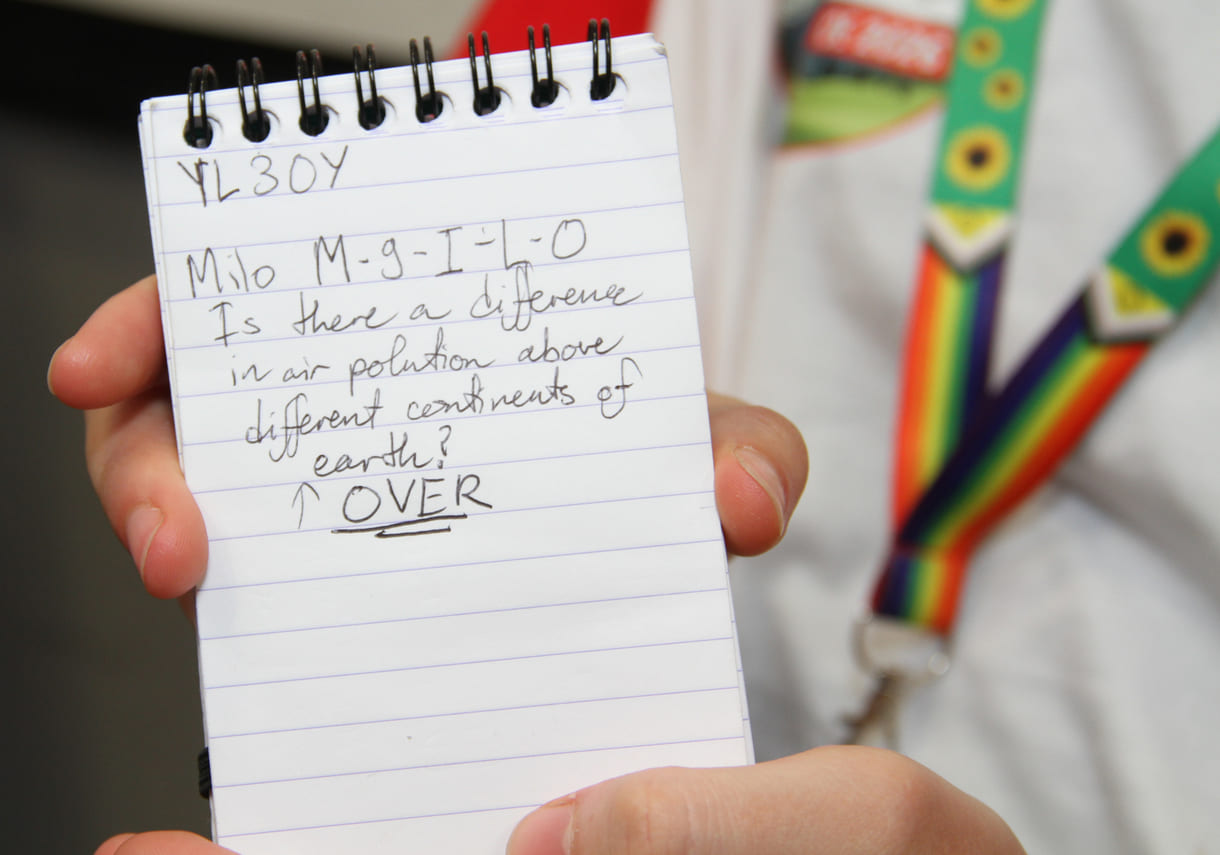 YL3OY
Milo M-g-I-L-O
Is there a difference
in air polution above
different continents of
earth?
↑ OVER